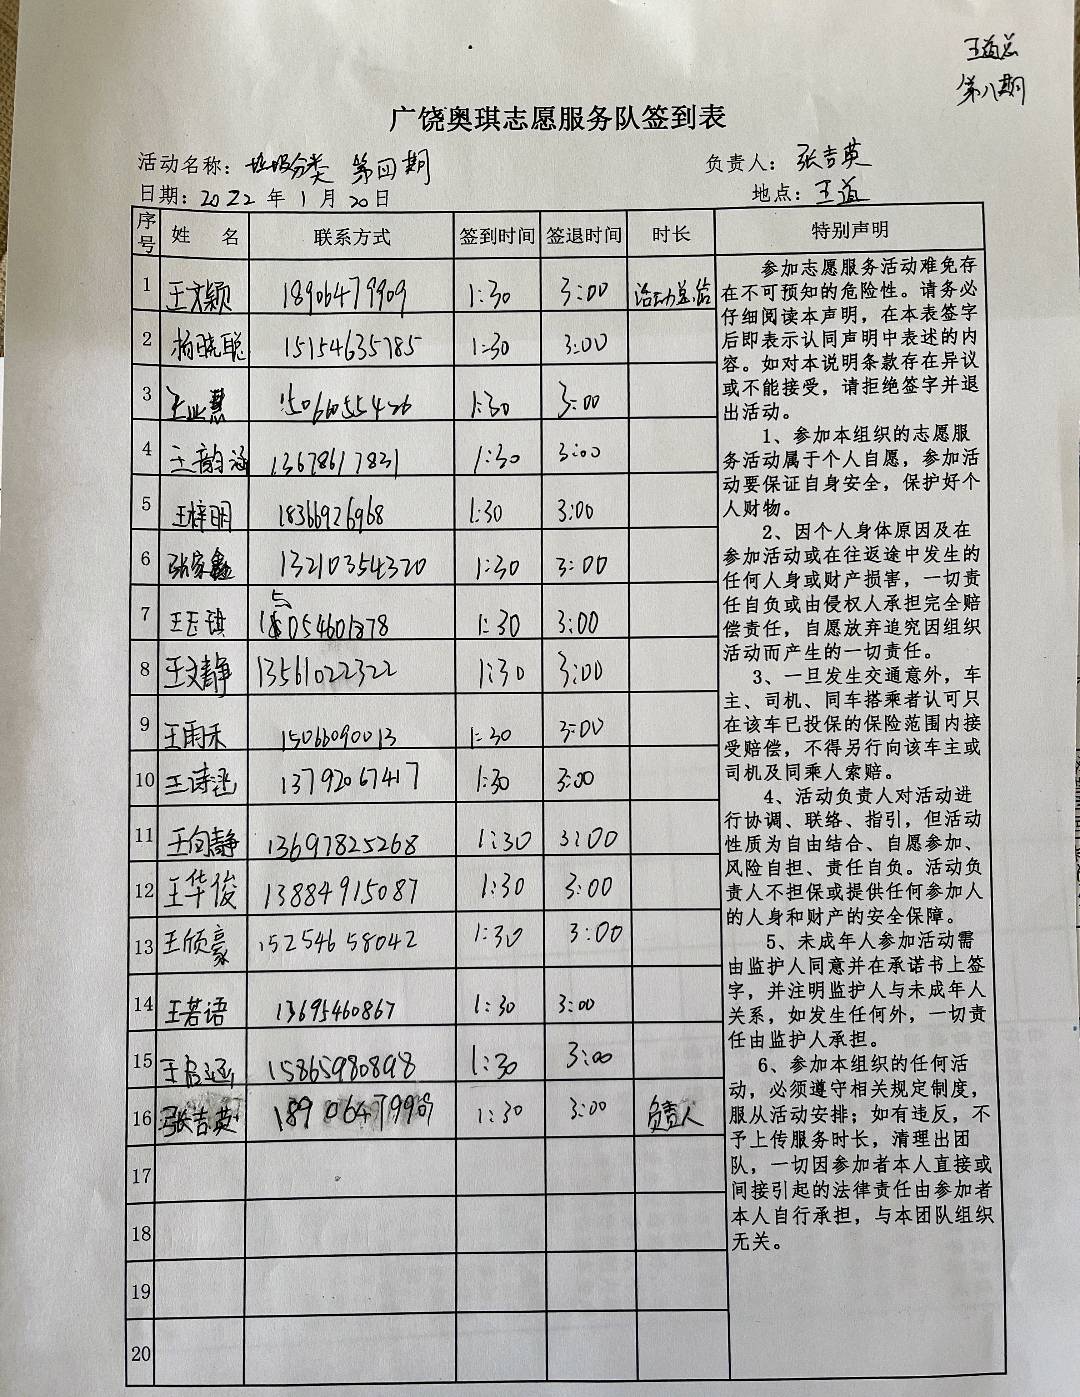 王道总
第八期
广饶奥琪志愿服务队签到表
活动名称：垃圾分类 第四期 负责人：张吉英
日期：2022 年 1 月 20 日 地点：王道
序号 姓 名 联系方式 签到时间 签退时间 时长 特别声明
1 王文颖 18906479909 1:30 3:00 活动总结
2 杨晓聪 15154635785 1:30 3:00
3 慧 15066055426 1:30 3:00
4 王韵涵 13678617831 1:30 3:00
5 王梓明 18366926968 1:30 3:00
6 张家鑫 13210354320 1:30 3:00
7 王玉琪 1:30 3:00
8 王文静 13561022322 1:30 3:00
9 王雨禾 15066090013 1:30 3:00
10 王诗涵 13792067417 1:30 3:00
11 王向静 13697825268 1:30 3:00
12 王华俊 13884915087 1:30 3:00
13 王颀豪 15254658042 1:30 3:00
14 王若语 13695460867 1:30 3:00
15 王启 15865980898 1:30 3:00
16 张吉英 1:30 3:00 负责人
17
18
19
20
参加志愿服务活动难免存
在不可预知的危险性。请务必
仔细阅读本声明，在本表签字
后即表示认同声明中表述的内
容。如对本说明条款存在异议
或不能接受，请拒绝签字并退
出活动。
1、参加本组织的志愿服
务活动属于个人自愿，参加活
动要保证自身安全，保护好个
人财物。
2、因个人身体原因及在
参加活动或在往返途中发生的
任何人身或财产损害，一切责
任自负或由侵权人承担完全赔
偿责任，自愿放弃追究因组织
活动而产生的一切责任。
3、一旦发生交通意外，车
主、司机、同车搭乘者认可只
在该车已投保的保险范围内接
受赔偿，不得另行向该车主或
司机及同乘人索赔。
4、活动负责人对活动进
行协调、联络、指引，但活动
性质为自由结合、自愿参加、
风险自担、责任自负。活动负
责人不担保或提供任何参加人
的人身和财产的安全保障。
5、未成年人参加活动需
由监护人同意并在承诺书上签
字，并注明监护人与未成年人
关系，如发生任何外，一切责
任由监护人承担。
6、参加本组织的任何活
动，必须遵守相关规定制度，
服从活动安排；如有违反，不
予上传服务时长，清理出团
队，一切因参加者本人直接或
间接引起的法律责任由参加者
本人自行承担，与本团队组织
无关。